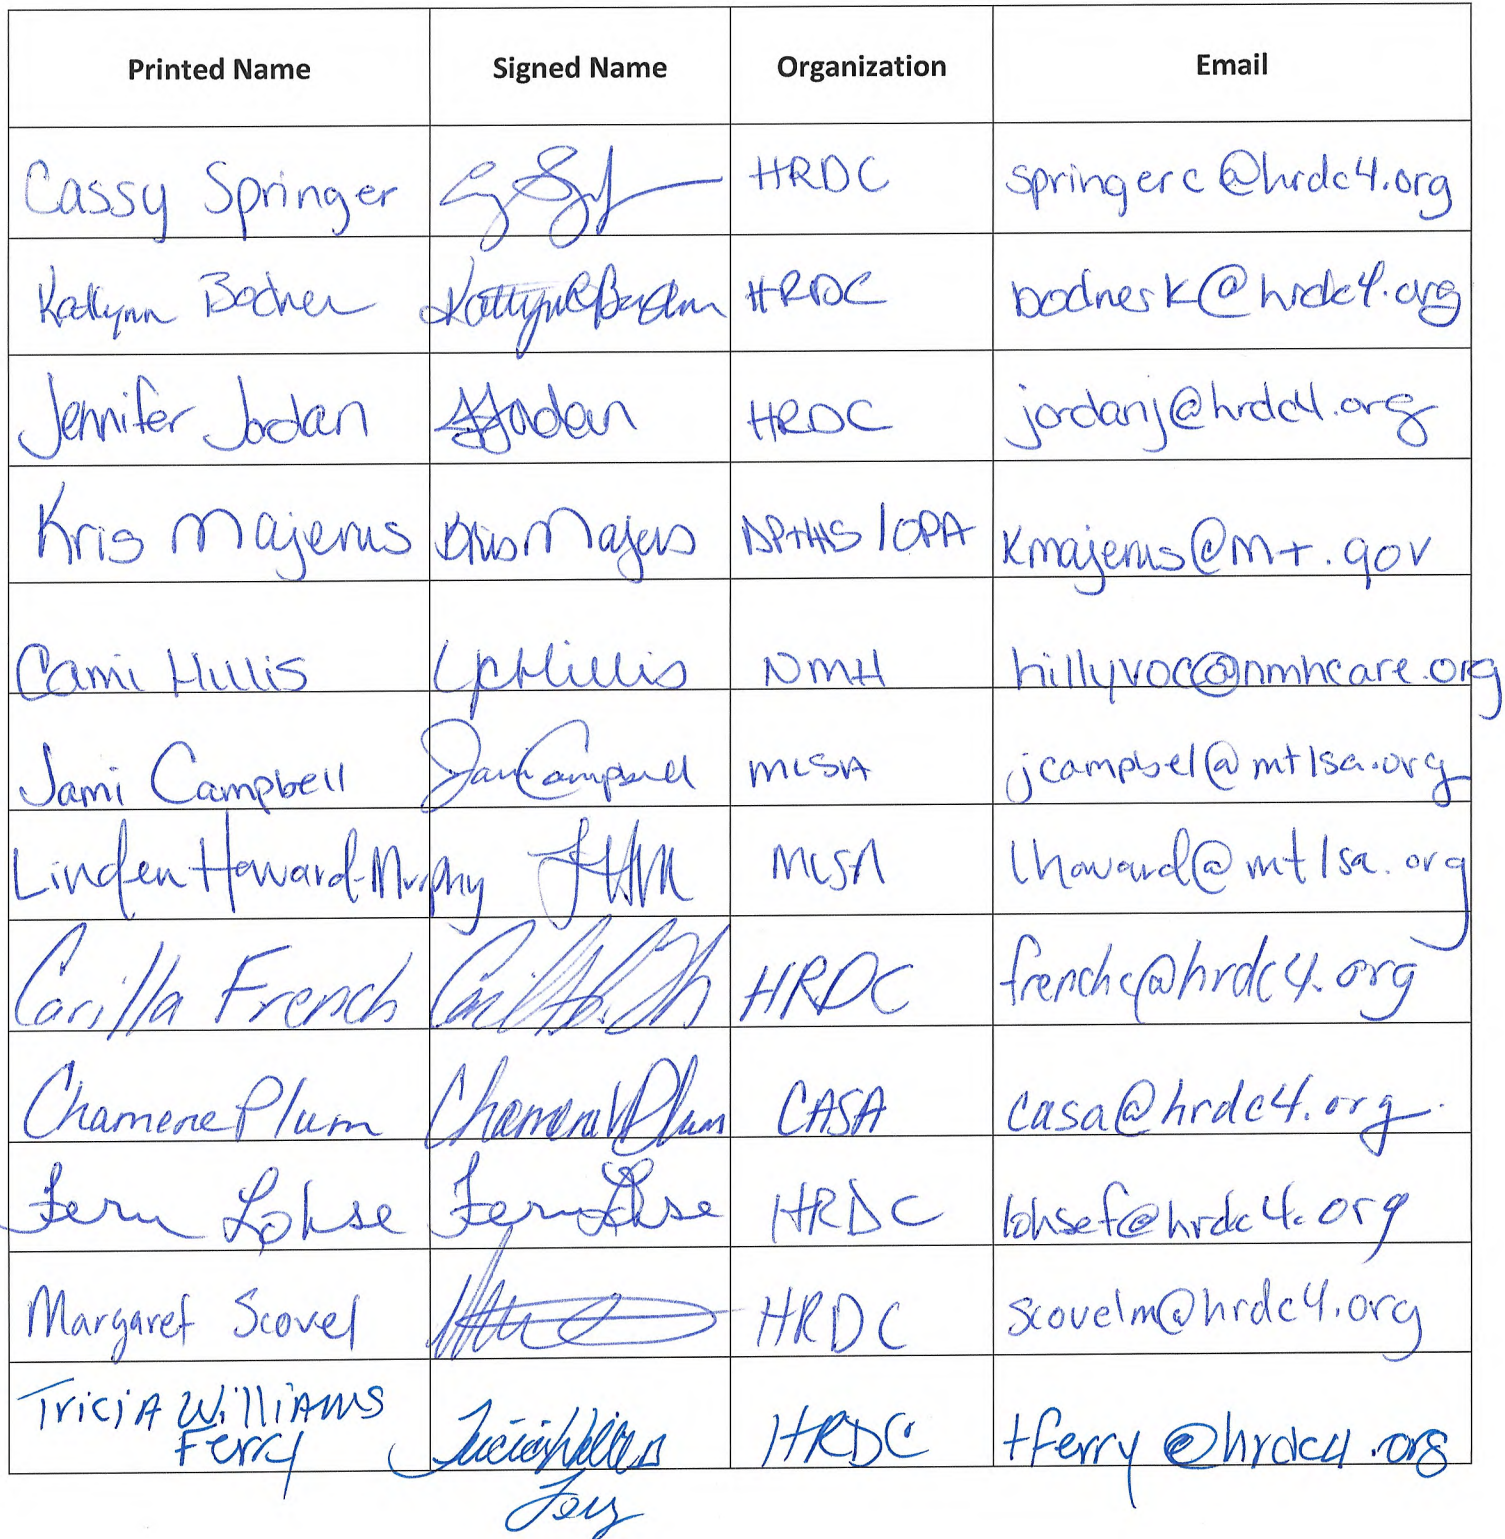 Printed Name Signed Name Organization Email
Cassy Springer HRDC springerc@hrdc4.org
Katlynn Bodner HRDC bodnerk@hrdc4.org
Jennifer Jordan JJordan HRDC jordanj@hrdc4.org
Kris Majerus Kris Majerus DPHHS/OPA kmajerus@mt.gov
Cami Hillis Hillis NMH hillyvoc@nmhcare.org
Jami Campbell Jami Campbell MLSA jcampbel@mtlsa.org
Linden Howard-Murphy LHM MLSA lhoward@mtlsa.org
Carilla French HRDC frenchc@hrdc4.org
Chamene Plum Chamene Plum CASA casa@hrdc4.org
Fern Lohse Fern Lohse HRDC lohsef@hrdc4.org
Margaret Scovel HRDC scovelm@hrdc4.org
Tricia Williams
Ferry Tricia Williams HRDC tferry@hrdc4.org
Ferry